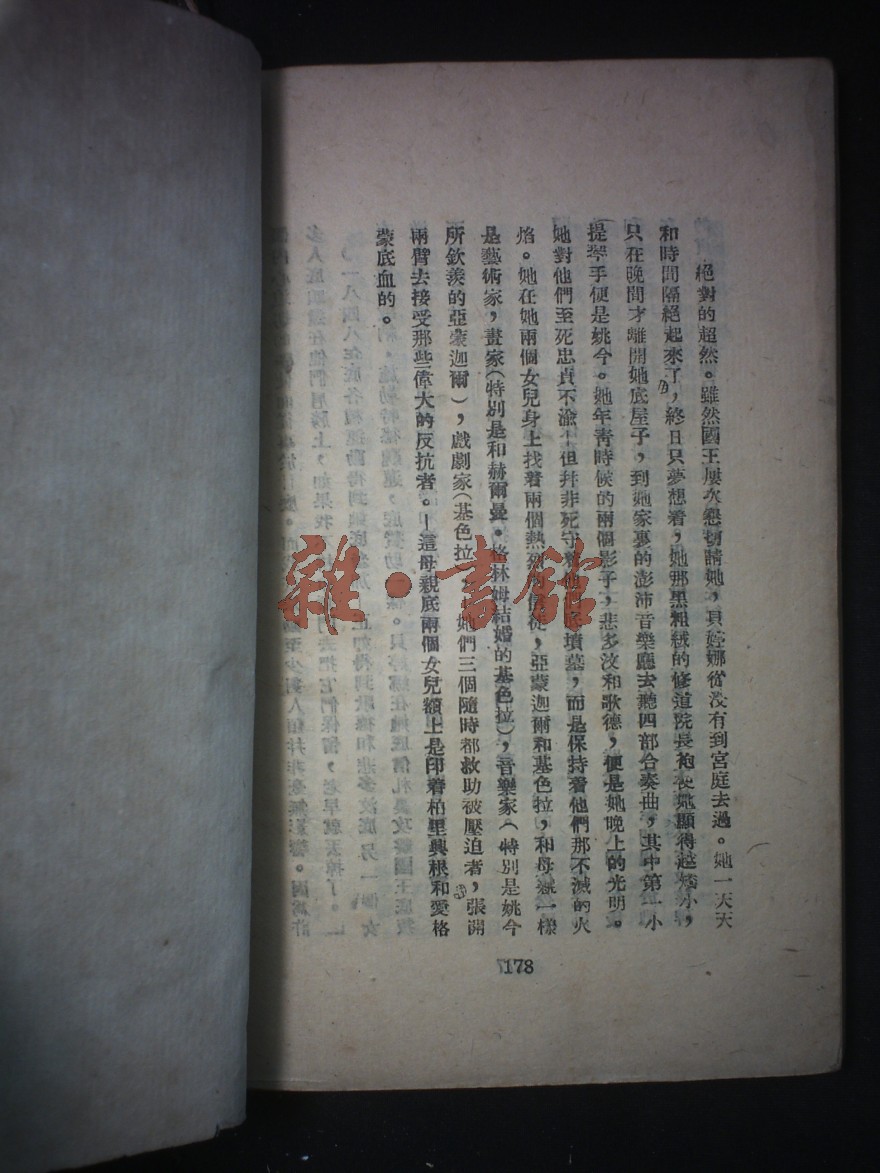 絕對的超然。雖然國王屢次懇切請她，貝婷娜從沒有到宮庭去過。她一天天
和時間隔絕起來了，終日只夢想着，她那黑粗絨的修道院長袍使她顯得越矮小，
只在晚間才離開她底屋子，到她家裏的澎沛音樂廳去聽四部合奏曲，其中第一小
提琴手便是姚今。她年青時候的兩個影子，悲多汶和歌德，便是她晚上的光明。
她對他們至死忠貞不渝，但幷非死守着他們底墳墓，而是保持着他們那不滅的火
焰。她在她兩個女兒身上找着兩個熱烈的信徒，亞蒙迦爾和基色拉，和母親一樣
是藝術家，畫家（特別是和赫爾曼・格林姆結婚的基色拉），音樂家（特別是姚今
所欽羨的亞蒙迦爾），戲劇家（基色拉）。她們三個隨時都救助被壓迫者，張開
兩臂去接受那些偉大的反抗者。—這母親底兩個女兒額上是印着柏里興根和愛格
蒙底血的。
178
雜・書館